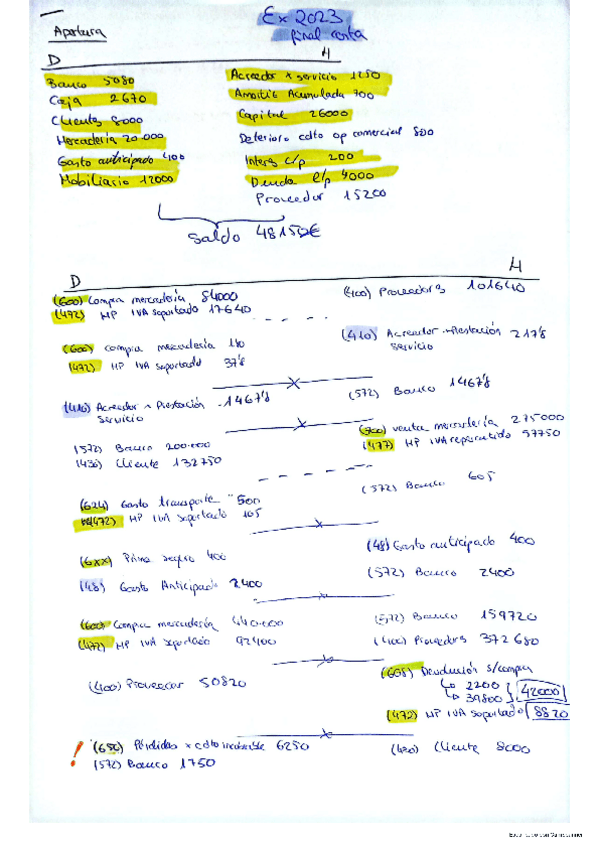 Ex 2023
final conta
Apertura
D H
Banco 5080 Acreedor x servicio 1250
Caja 2670 Amortiz Acumulada 700
Clientes 8000 Capital 26000
Mercadería 20.000 Deterioro cdto op comercial 800
Gasto anticipado 400 Interes c/p 200
Mobiliario 12000 Deuda l/p 4000
Proveedor 15200
Saldo 48150€
D H
(600) Compra mercadería 84000 (400) Proveedores 101640
(472) HP IVA soportado 17640
(600) compra mercadería 180 (410) Acreedor x Prestación 217'8
(472) HP IVA soportado 37'8 servicio
(410) Acreedor x Prestación 1467'8 (572) Banco 1467'8
servicio
(572) Banco 200.000 (700) venta mercadería 275000
(430) Cliente 132750 (477) HP IVA repercutido 57750
(624) Gasto transporte 500 (572) Banco 605
(472) HP IVA soportado 105
(6xx) Prima seguro 400 (48) Gasto anticipado 400
(48) Gasto Anticipado 2400 (572) Banco 2400
(600) Compra mercadería 440.000 (572) Banco 159720
(472) HP IVA soportado 92400 (400) Proveedores 372680
(400) Proveedor 50820 (608) Devolución s/compra
2200
39800 42000
(472) HP IVA soportado 8820
! (650) Pérdidas x cdto incobrable 6250 (430) Cliente 8000
(572) Banco 1750